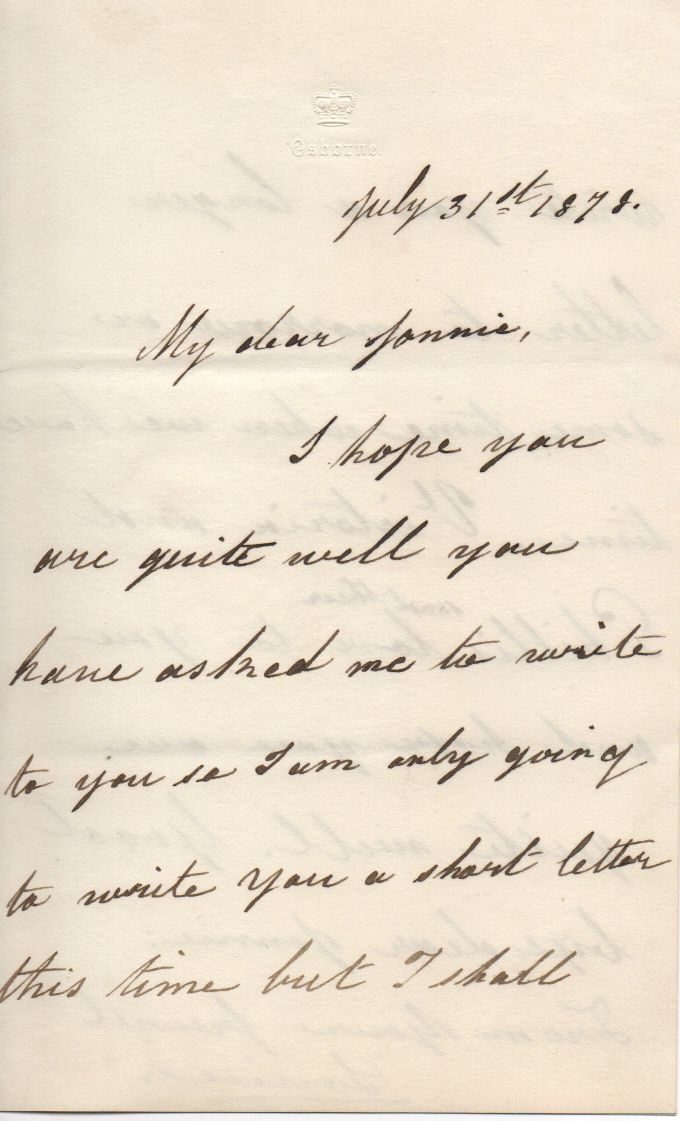 Osborne.
July 31st 1878.
My dear Jonnie,
I hope you
are quite well you
have asked me to write
to you so I am only going
to write you a short letter
this time but I shall